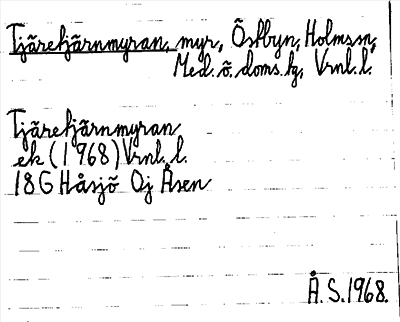 Tjäretjärnmyran, myr, Östbyn, Holmsn,
Med. ö. doms. tg, Vrnl. l.
Tjäretjärnmyran
ek (1968) Vrnl. l.
18G Håsjö Oj Åsen
Å. S. 1968.